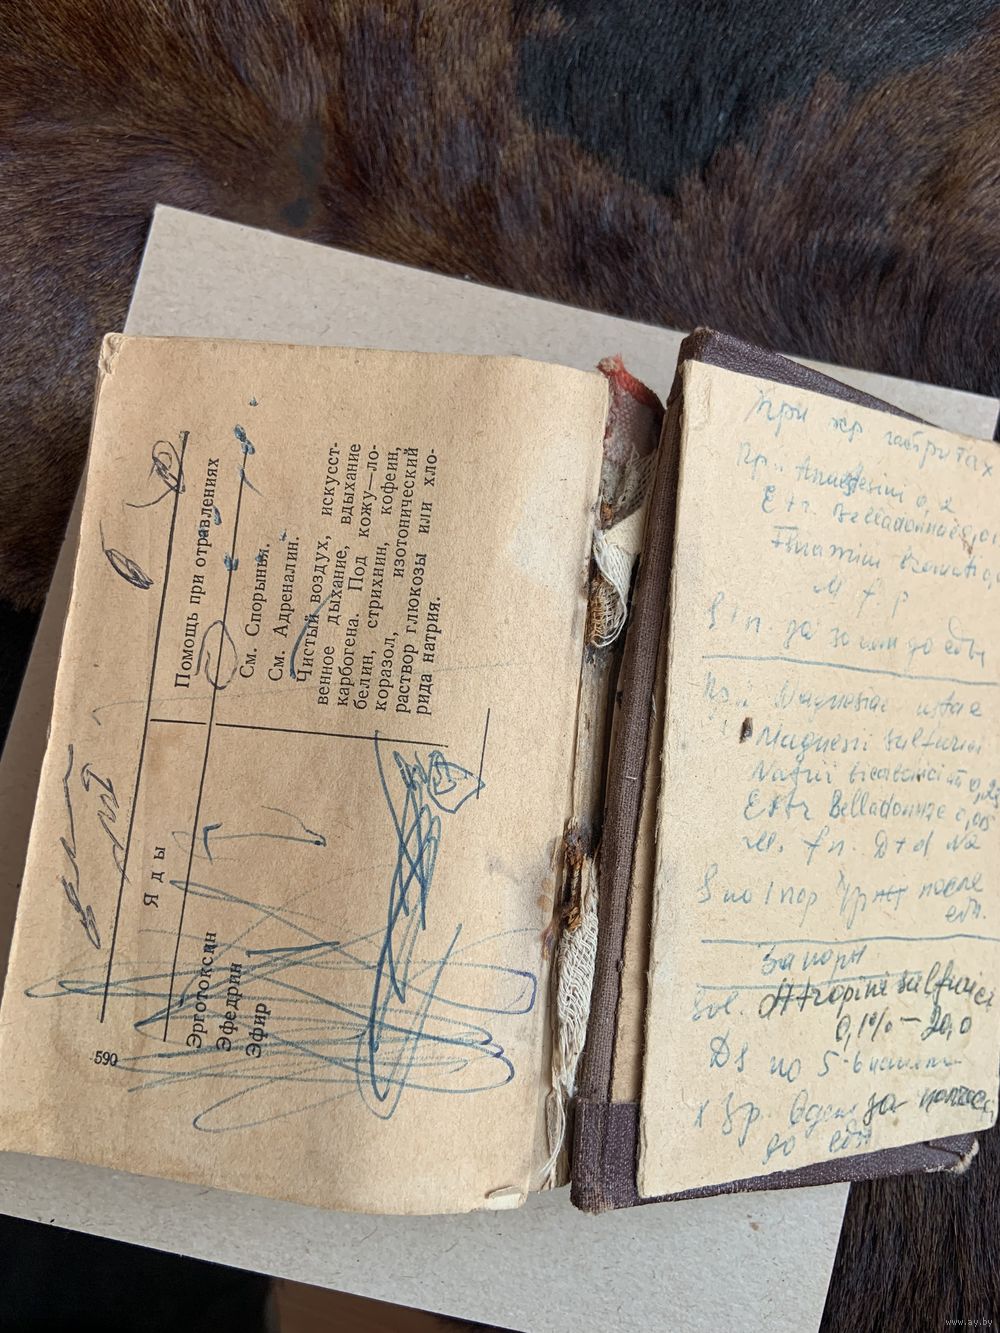 590
Яды
Помощь при отравлениях
Эрготоксин
См. Спорынья.
Эфедрин
См. Адреналин.
Эфир
Чистый воздух, искусст-
венное дыхание, вдыхание
карбогена. Под кожу—ло-
белин, стрихнин, кофеин,
коразол, изотонический
раствор глюкозы или хло-
рида натрия.
При хр гастритах
Rp.: Anaesthesini 0,2
Extr. Belladonnae 0,01
M f p
S 1 п. за 30 мин до еды
Rp.: Magnesiae ustae
Magnesii sulfurici
Natrii bicarbonici
Extr Belladonnae 0,015
M. f п. D t d №
S по 1 пор после
еды.
Запоры
Sol. Atropini sulfurici
0,1% – 20,0
DS по 5-6 капель
до еды
www.ay.by